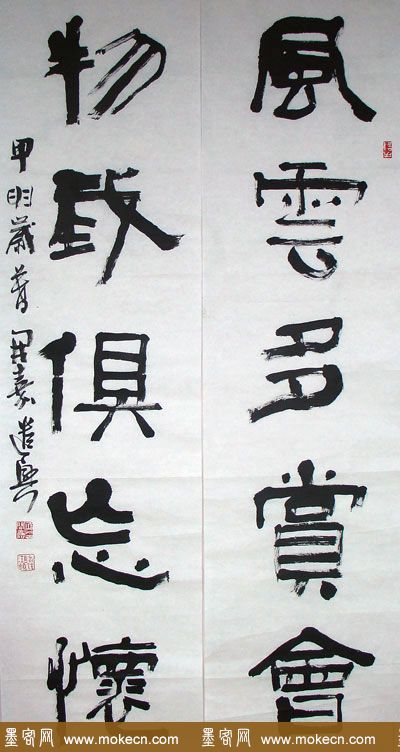 風雲多賞會
物我俱忘懷
甲 歲 遣興
墨客网 www.mokecn.com 墨客网 www.mokecn.com